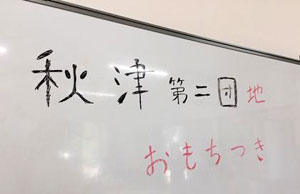 秋津第二団地
おもちつき